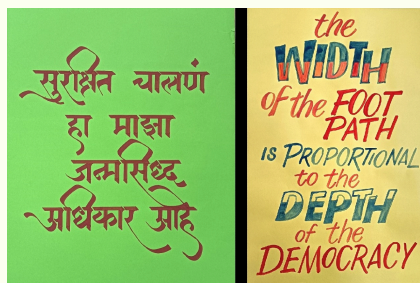 सुरक्षित चालणं
हा माझा
जन्मसिध्द
अधिकार आहे
the
WIDTH
of the FOOT
PATH
IS PROPORTIONAL
to the
DEPTH
of the
DEMOCRACY